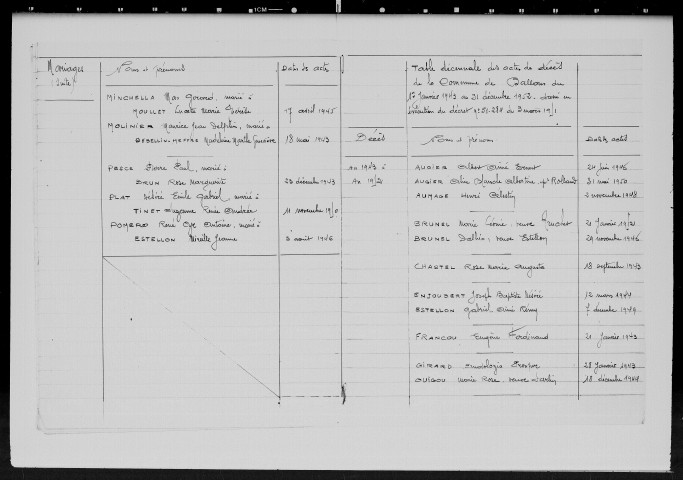 Mariages
(suite)
Noms et prénoms
Dates des actes
MINCHELLA Max Gérard, marié à
MOULLET Lucette Marie Thérèse
17 avril 1945
MOLINIER Maurice Jean Delphin, marié à
Madeleine Marthe Geneviève
18 mai 1943
PESCE Pierre Paul, marié à
BRUN Rose Marguerite
23 décembre 1943
PLAT Désiré Emile Gabriel marié à
TINET Suzanne Renée Andrée
11 novembre 1950
POMERO René Antoine, marié à
ESTELLON Mireille Jeanne
3 août 1946
Décès
An 1943 à
An 1952
Table décennale des actes de décès
de la Commune de Ballons du
1er Janvier 1943 au 31 décembre 1952. dressée en
exécution du décret n° 51-284 du 3 mars 1951
Noms et prénoms
Dates des actes
AUGIER Albert Aimé Ernest
24 juin 1946
AUGIER Albertine Rolland
31 mai 1950
AUMAGE Henri Célestin
2 novembre 1948
BRUNEL Marie veuve
21 Janvier 1952
BRUNEL veuve Estellon
29 novembre 1946
CHASTEL Rose Marie Augusta
18 septembre 1943
ENJOUBERT Joseph Baptiste Désiré
12 mars 1944
ESTELLON Gabriel Aimé Rémy
7 décembre 1949
FRANCOU Eugène Ferdinand
21 Janvier 1943
GIRARD
28 Janvier 1943
GUIGOU Marie Rose, veuve
18 décembre 1944